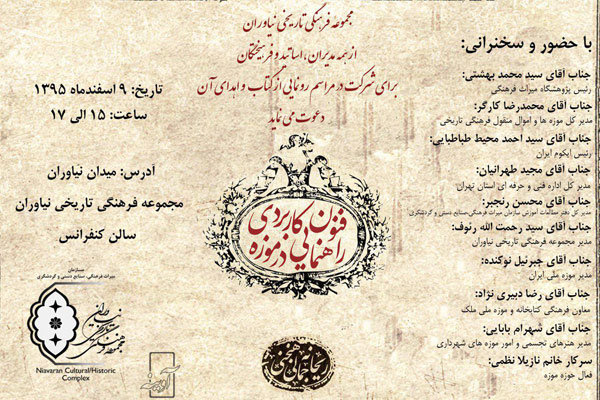 مجموعه فرهنگی تاریخی نیاوران
از همه مدیران، اساتید و فرهیختگان
برای شرکت در مراسم رونمایی از کتاب و اهدای آن
دعوت می نماید
با حضور و سخنرانی:
جناب آقای سید محمد بهشتی:
رئیس پژوهشگاه میراث فرهنگی
جناب آقای محمدرضا کارگر:
مدیر کل موزه ها و اموال منقول فرهنگی تاریخی
جناب آقای سید احمد محیط طباطبایی:
رئیس ایکوم ایران
جناب آقای مجید طهرانیان:
مدیر کل اداره فنی و حرفه ای استان تهران
جناب آقای محسن رنجبر:
مدیر کل دفتر مطالعات آموزش سازمان میراث فرهنگی،صنایع دستی و گردشگری
جناب آقای سید رحمت الله رئوف:
مدیر مجموعه فرهنگی تاریخی نیاوران
جناب آقای جبرئیل نوکنده:
مدیر موزه ملی ایران
جناب آقای رضا دبیری نژاد:
معاون فرهنگی کتابخانه و موزه ملی ملک
جناب آقای شهرام بابایی:
مدیر هنرهای تجسمی و امور موزه های شهرداری
سرکار خانم نازیلا نظمی:
فعال حوزه موزه
تاریخ: ۹ اسفندماه ۱۳۹۵
ساعت: ۱۵ الی ۱۷
آدرس: میدان نیاوران
مجموعه فرهنگی تاریخی نیاوران
سالن کنفرانس
فنون کاربردی
راهنمایی در موزه
سازمان
میراث فرهنگی، صنایع دستی و گردشگری
Niavaran Cultural/Historic
Complex